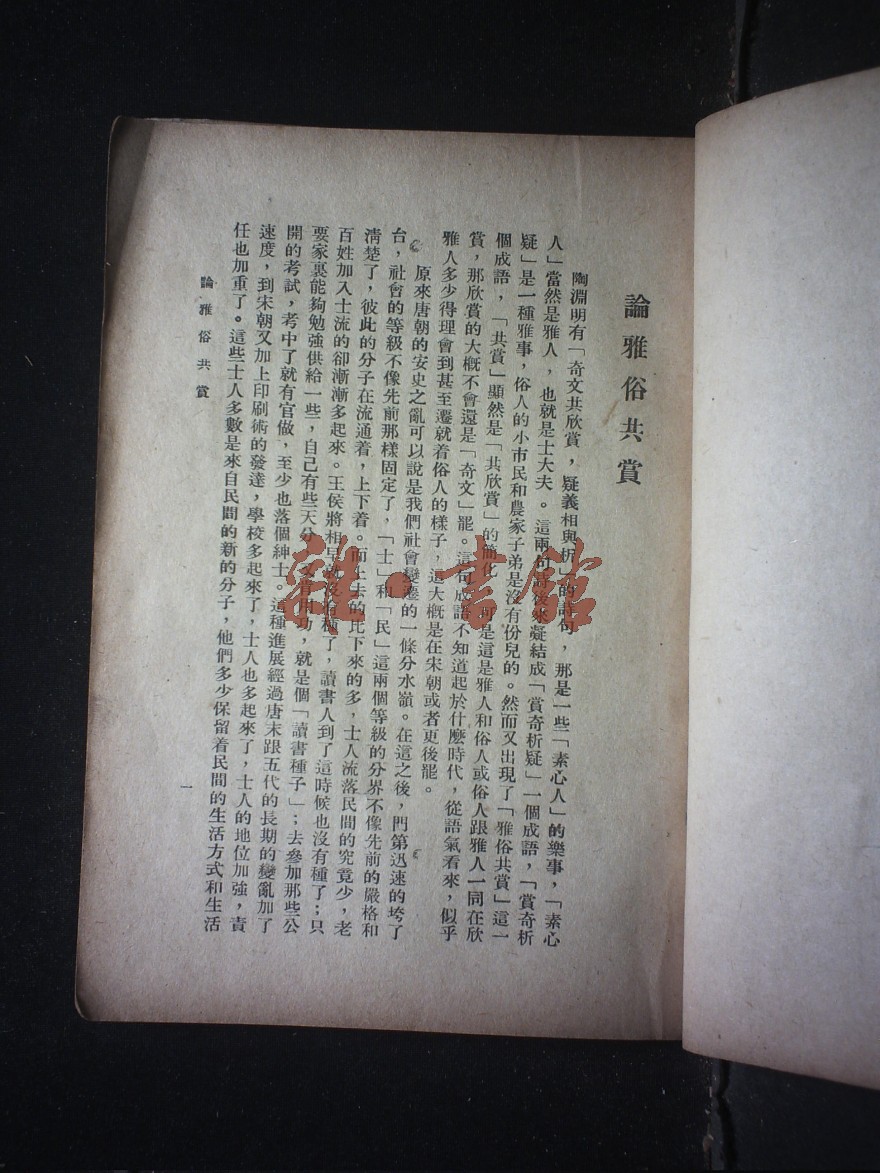 論雅俗共賞
陶淵明有「奇文共欣賞，疑義相與析」的詩句，那是一些「素心人」的樂事，「素心
人」當然是雅人，也就是士大夫。這兩句詩後來凝結成「賞奇析疑」一個成語，「賞奇析
疑」是一種雅事，俗人的小市民和農家子弟是沒有份兒的。然而又出現了「雅俗共賞」這一
個成語，「共賞」顯然是「共欣賞」的簡化，可是這是雅人和俗人或俗人跟雅人一同在欣
賞，那欣賞的大概不會還是「奇文」罷。這句成語不知道起於什麼時代，從語氣看來，似乎
雅人多少得理會到甚至遷就着俗人的樣子，這大概是在宋朝或者更後罷。
原來唐朝的安史之亂可以說是我們社會變遷的一條分水嶺。在這之後，門第迅速的垮了
台，社會的等級不像先前那樣固定了，「士」和「民」這兩個等級的分界不像先前的嚴格和
清楚了，彼此的分子在流通着，上下着。而上去的比下來的多，士人流落民間的究竟少，老
百姓加入士流的卻漸漸多起來。王侯將相早就沒有種了，讀書人到了這時候也沒有種了；只
要家裏能夠勉強供給一些，自己有些天分，又肯用功，就是個「讀書種子」；去參加那些公
開的考試，考中了就有官做，至少也落個紳士。這種進展經過唐末跟五代的長期的變亂加了
速度，到宋朝又加上印刷術的發達，學校多起來了，士人也多起來了，士人的地位加強，責
任也加重了。這些士人多數是來自民間的新的分子，他們多少保留着民間的生活方式和生活
論雅俗共賞
一
雜·書館